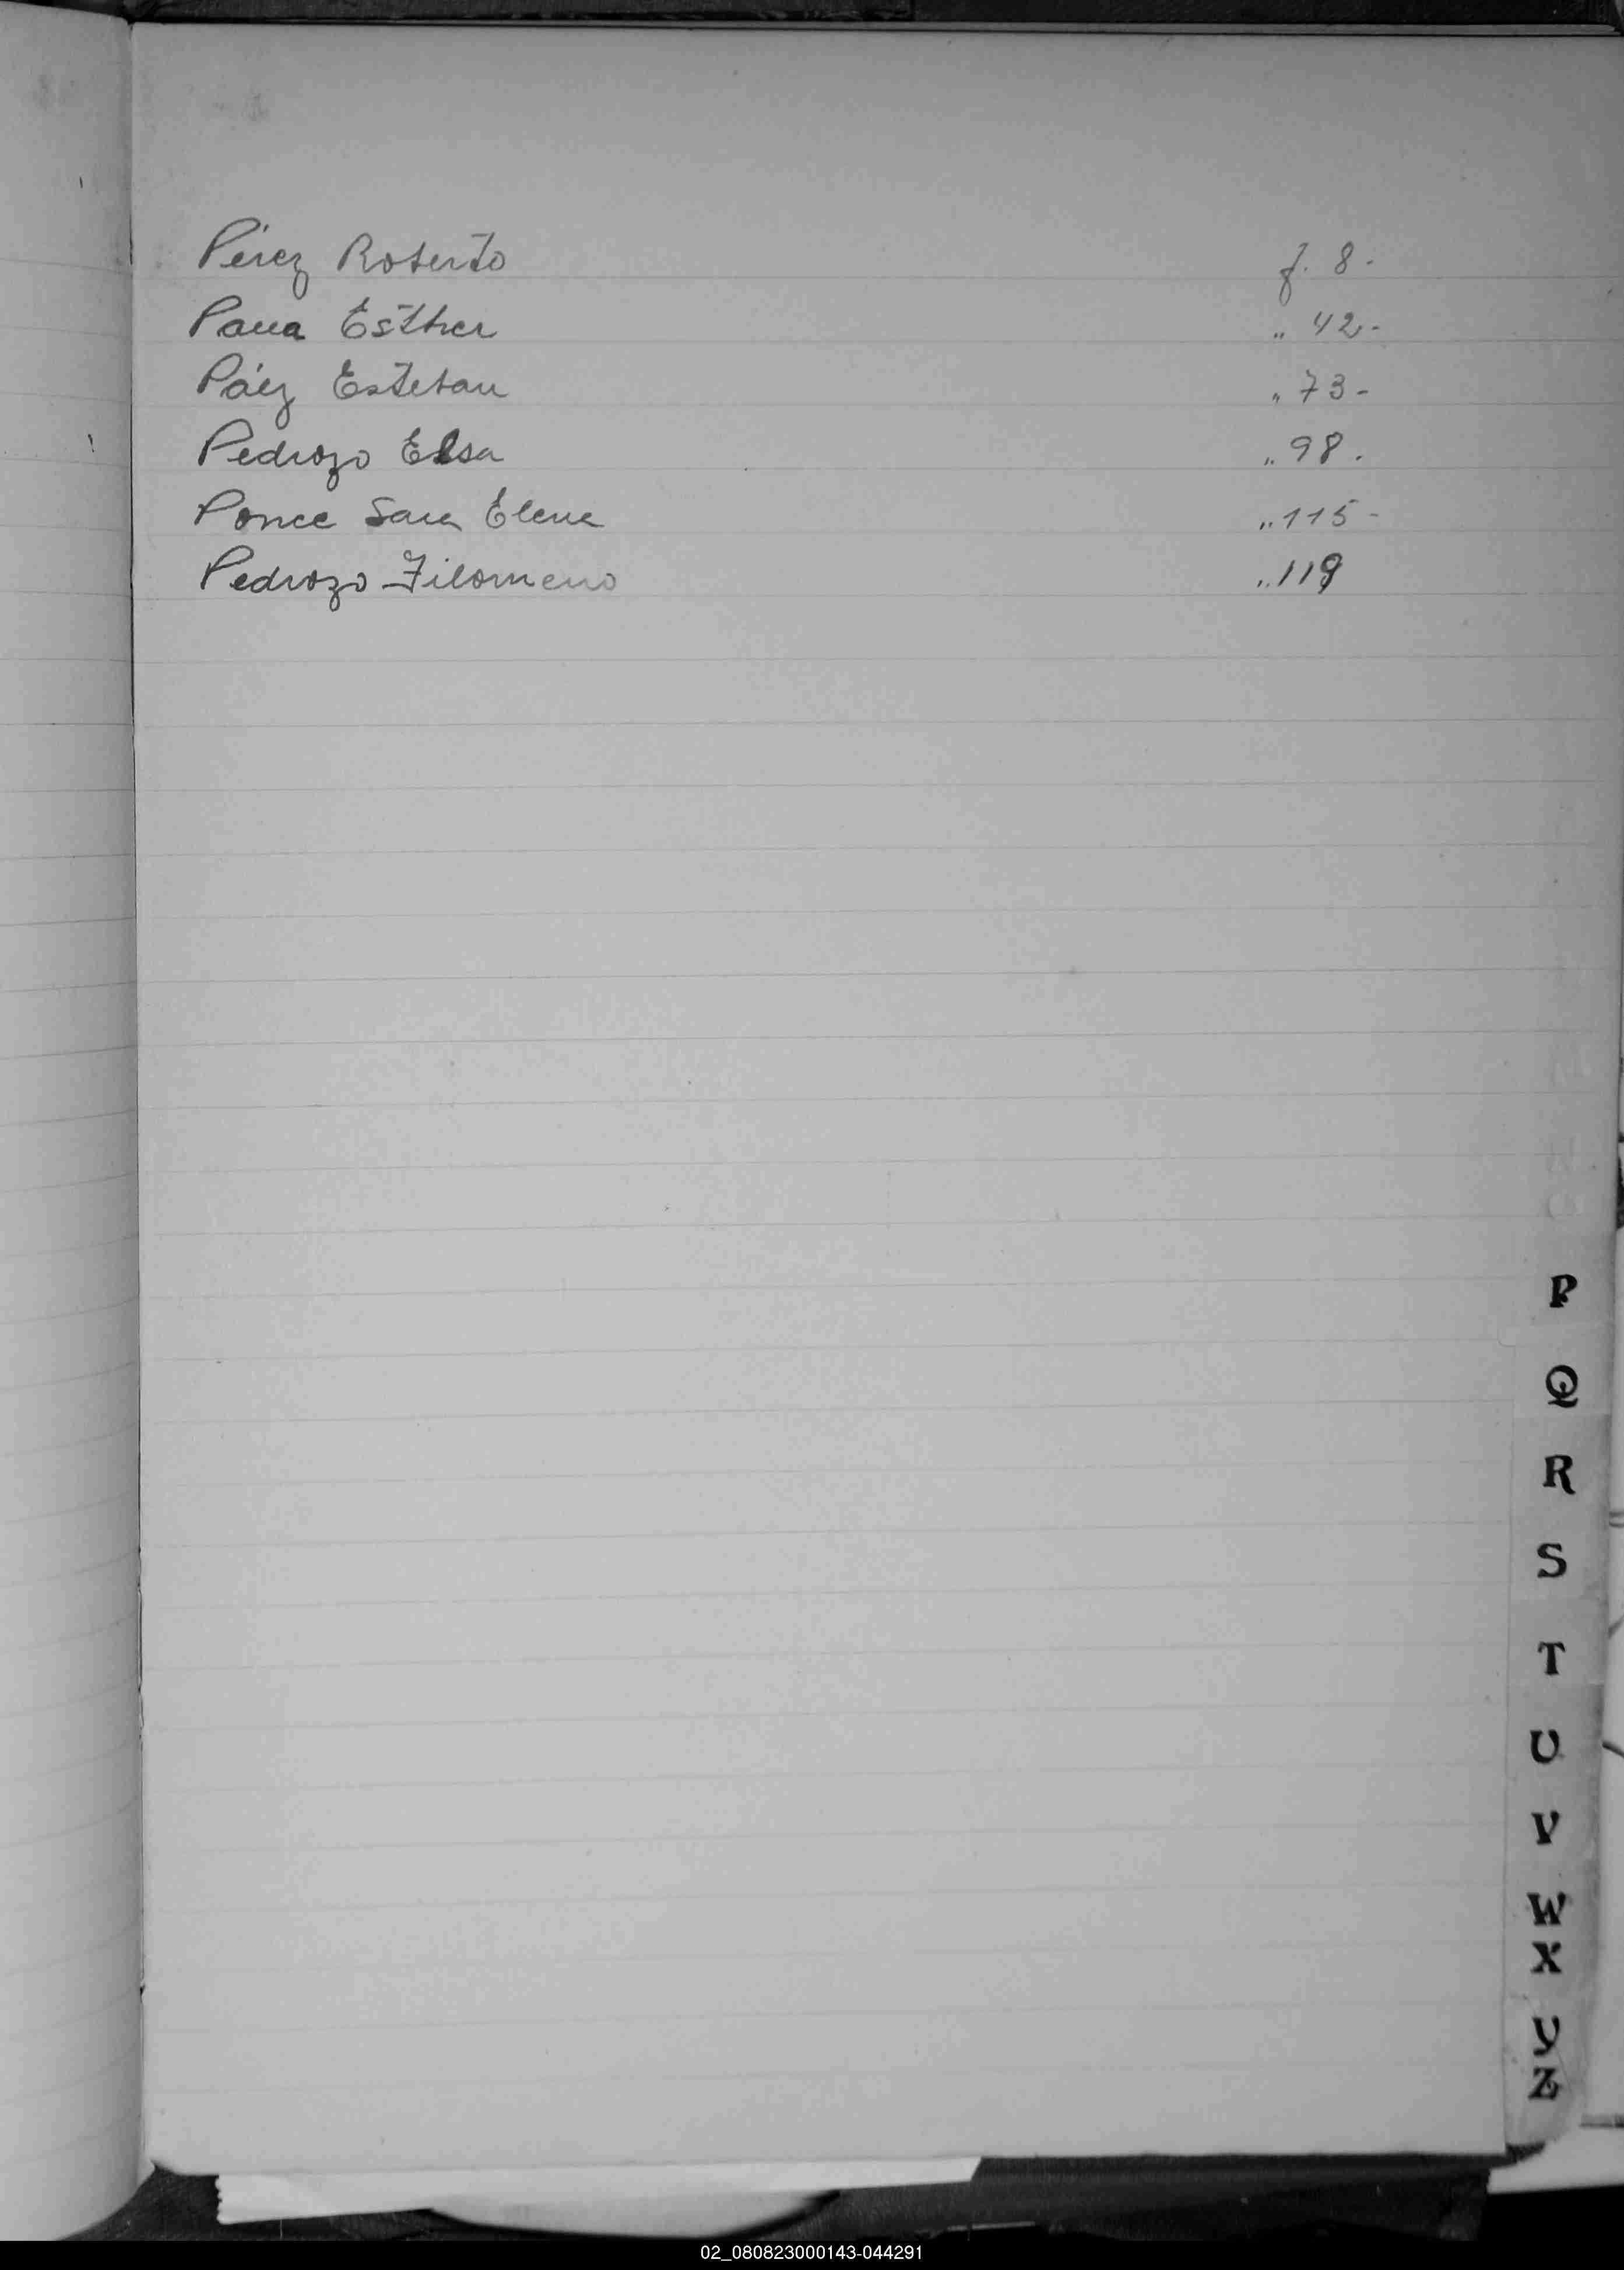 Pérez Roberto f. 8.-
Paua Esther „ 42.-
Páez Esteban „ 73-
Pedrozo Elsa „ 98.
Ponce Sara Elena „ 115-
Pedrozo Filomeno „ 119
P
Q
R
S
T
U
V
W
X
Y
Z
02_080823000143-044291